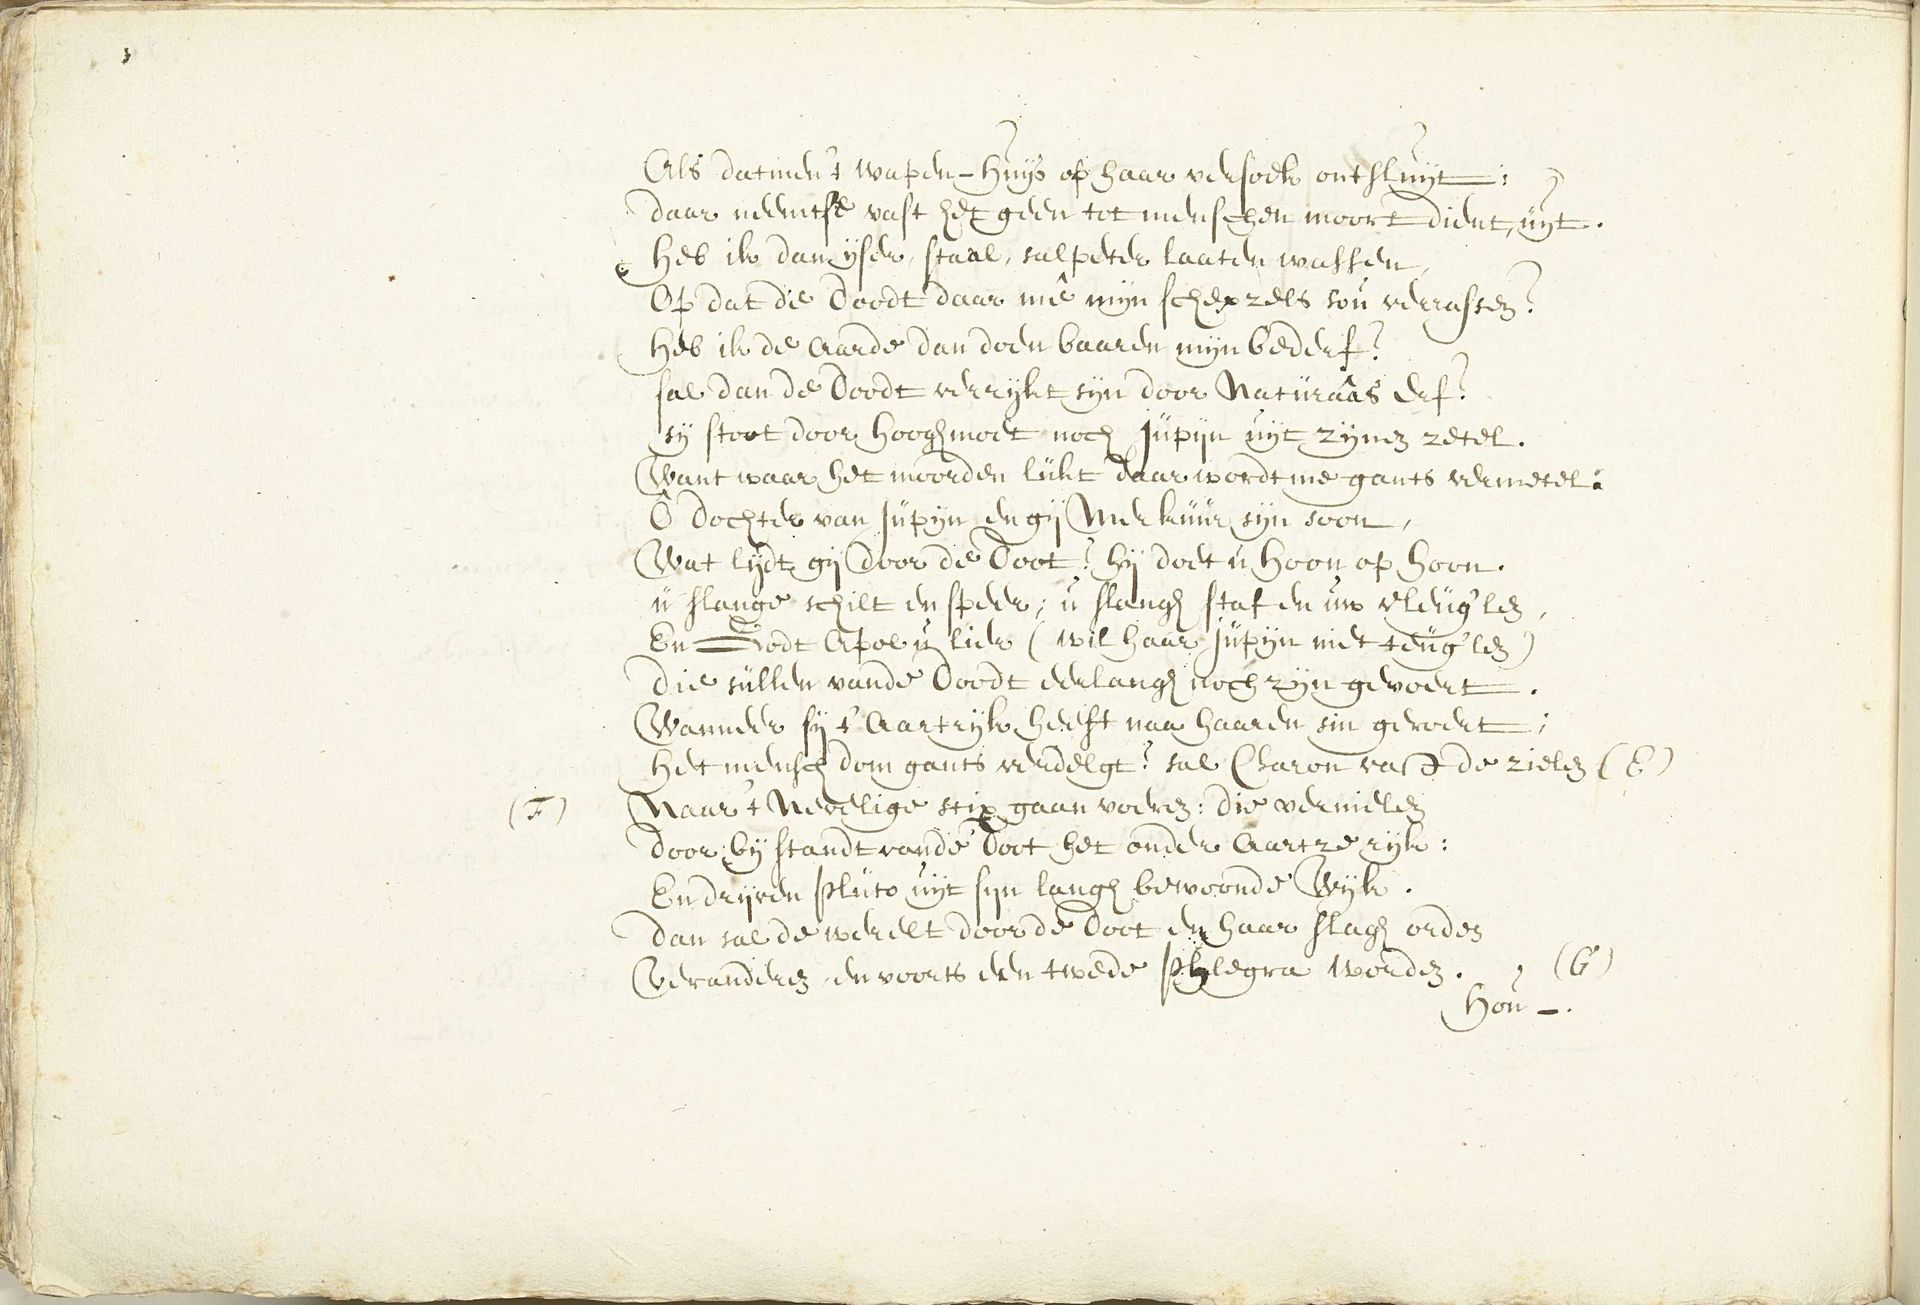 Als datmen't wapen-huijs op haar versoek ontsluijt:
daar neemtse vast het geen tot menschen moort dient, uijt.
heb ik dan ijser, staal, salpeter laaten wassen,
Op dat de Doodt daar meê mijn schepzels sou verrassen?
heb ik de Aarde dan doen baaren mijn bederf?
sal dan de Doodt verrijkt sijn door Naturaâs erf?
sij stoot door hooghmoet noch Jupijn uijt zijnen zetel.
Want waar het moorden lukt daar wordtme gants vermetel:
Ô dochter van Jupijn en gij Merkuur sijn soon,
Wat lijdt gij door de Doot? hij doet u hoon op hoon.
u slange schilt en speer; u slangh staf en uw vleug'len,
En Godt Apol u lier (wil haar Jupijn niet teug'len)
die sullen vande Doodt eerlangh noch zijn gevoert.
Wanneer sij t' Aartrijk heeft naa haaren sin geroert;
het menschdom gants verdelgt? sal Charon vast de zielen (E)
(F) Naar't Nevelige stix gaan voeren: die vernielen
door bijstandt vande Doot het onder Aartze rijk:
En drijven Pluto uijt sijn langh bewoonde Wijk.
dan sal de werelt door de Doot en haar slagh orden
Veranderen, en voorts een twede Phlegra worden. (G)
Hou-.